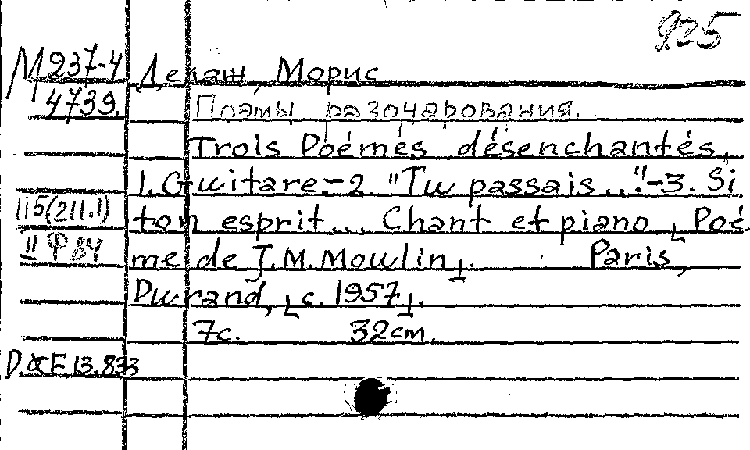 925
М237-4 Делаж, Морис
4739. Поэмы разочарования.
Trois Poèmes désenchantés.
1. Guitare.-2. "Tu passais..."-3. Si
115(211.1) ton esprit... Chant et piano [Poè
II Ф84 me de J.M. Moulin]. Paris,
Durand, [c. 1957].
7с. 32cm.
D.&F.13.833